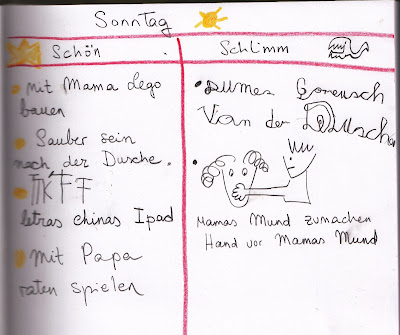 Sonntag
Schön
Schlimm
mit Mama Lego
bauen
Sauber sein
nach der Dusche.
letras chinas Ipad
mit Papa
raten spielen
Dumes Goreusch
Von der Duscha
Mamas Mund zumachen
Hand vor Mamas Mund